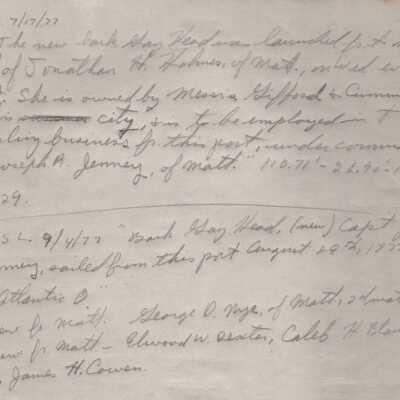 7/17/77
The new bark Gay Head was launched fr. the
of Jonathan H. Holmes, of Matt.,
She is owned by Messrs Gifford & Cumm
city, & is to be employed in t
ling business fr. this port, under comm
oseph A. Jenney, of Matt." 110.71' - 26.90' -
29.
S L. 9/4/77 "Bark Gay Head, (new) Capt
nney, sailed from this port August 28th, 187
Atlantic O."
ew fr Matt. George D. Nye, of Matt, 2d mat
ew fr Matt - Elwood W. Sexton, Caleb H. Blan
, James H. Cowen.